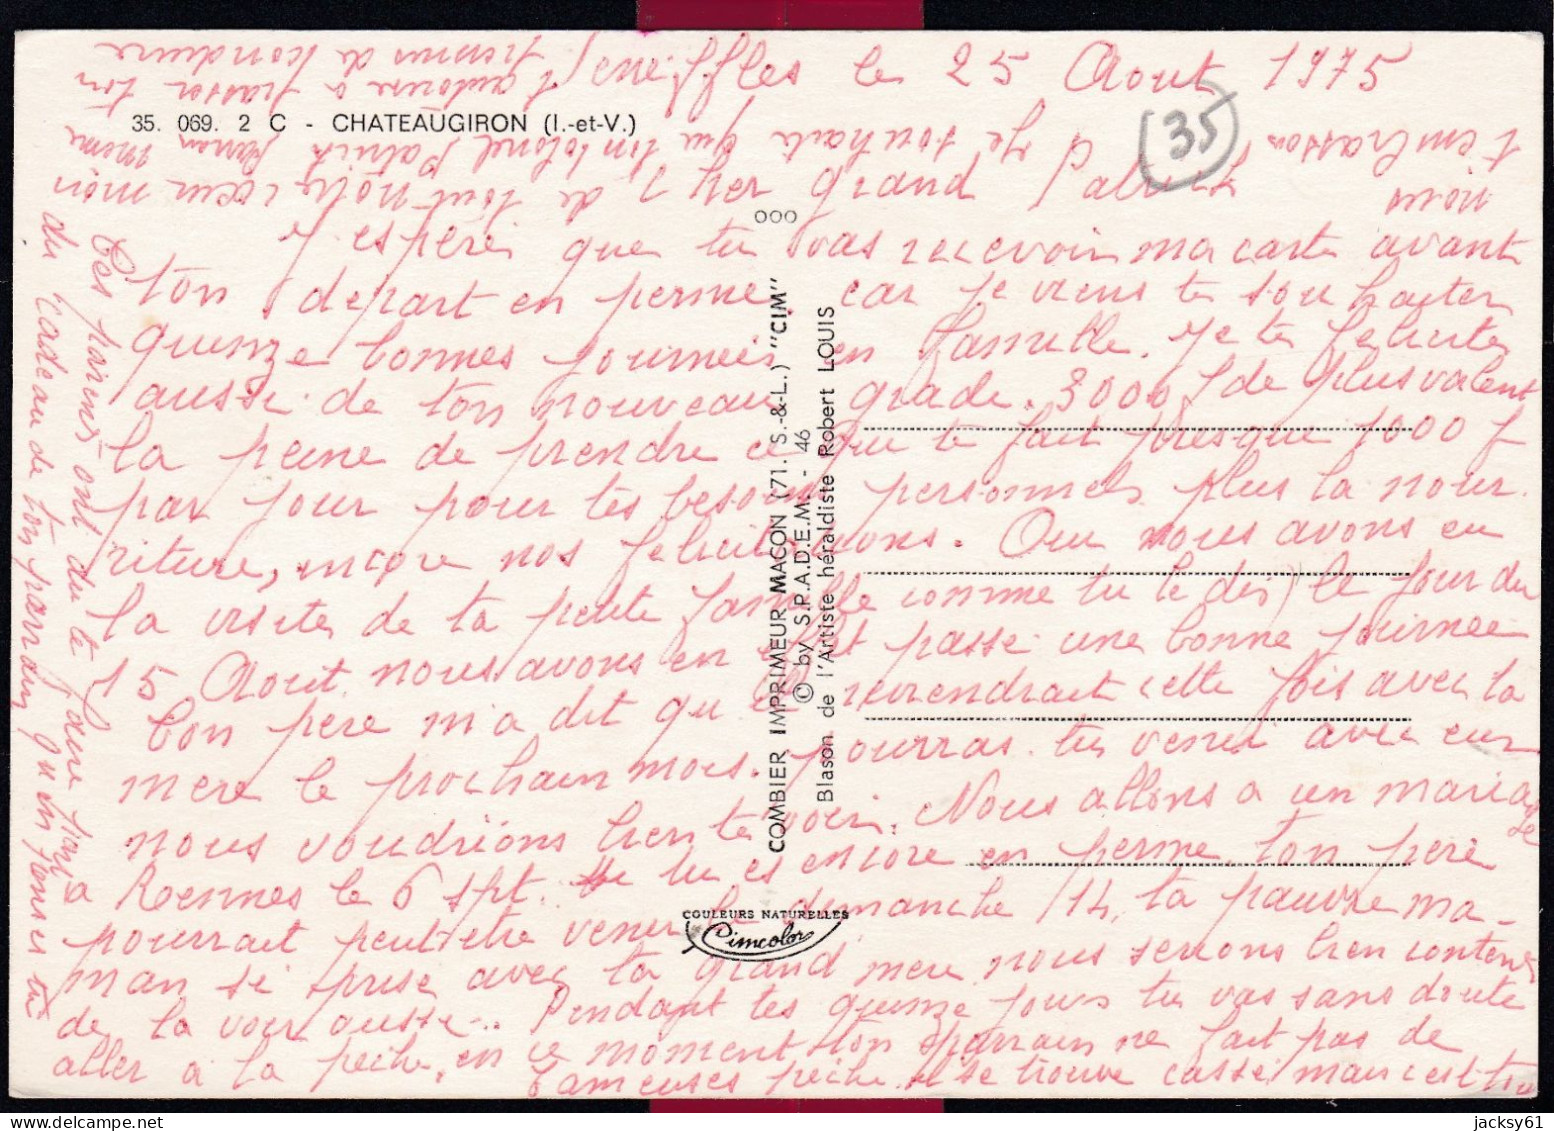 le 25 Aout 1975
35. 069. 2 C - CHATEAUGIRON (I.-et-V.)
35
Cher grand Patrick
J'espère que tu vas recevoir ma carte avant
ton départ en perme, car je viens te souhaiter
quinze bonnes journées en famille. Je te félicite
aussi de ton nouveau grade. 3000 f de plus valent
la peine de prendre ce qui te fait presque 1000 f
par jour pour tes besoins personnels plus la nour
riture, encore nos félicitations. Oui nous avons eu
la visite de la petite famille comme tu le dis) le jour du
15 Aout nous avons en effet passé une bonne journée
ton père m'a dit qu'il reviendrait cette fois avec ta
mère le prochain mois. pourras tu venir avec eux
nous voudrions bien te voir. Nous allons a un mariage
a Rennes le 6 spt. tu es encore en perme, ton père
pourrait peut-être venir le dimanche 14, ta pauvre ma-
man si prise avec ta grand mère nous serions bien contents
de la voir aussi... Pendant tes quinze jours tu vas sans doute
aller à la pêche, en ce moment ton parrain ne fait pas de
fameuses pêche il se trouve cassé mais c'est toi
Tes parents ont du te faire part
du cadeau de ton parrain qu'en penses tu
mon parrain même
t'autorise à passer ton
permis de conduire
Je souhaite que ton colonel Patrick
nous t'embrassons
de tout notre cœur
OOO
COMBIER IMPRIMEUR MACON (71. S.-&-L.) "CIM"
© by S.P.A.D.E.M. - 46
Blason de l'Artiste héraldiste Robert LOUIS
COULEURS NATURELLES
Cimcolor
jacksy61